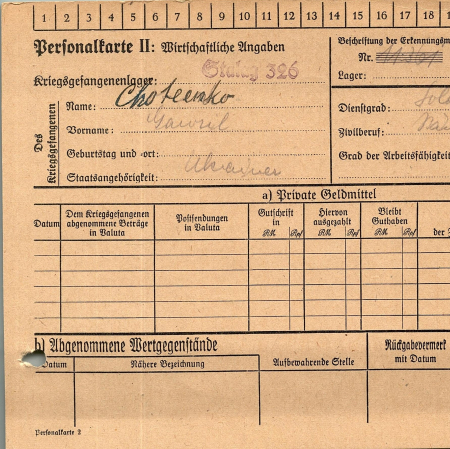 1 2 3 4 5 6 7 8 9 10 11 12 13 14 15 16 17 18
Personalkarte II: Wirtschaftliche Angaben
Beschriftung der Erkennungsm
Nr.
Kriegsgefangenenlager: Stalag 326
Lager:
Des Kriegsgefangenen
Name:
Vorname:
Geburtstag und -ort:
Staatsangehörigkeit: Ukrainer
Dienstgrad: Sol
Zivilberuf:
Grad der Arbeitsfähigkeit
a) Private Geldmittel
Datum
Dem Kriegsgefangenen abgenommene Beträge in Valuta
Postsendungen in Valuta
Gutschrift in
RM Rpf
Hiervon ausgezahlt
RM Rpf
Bleibt Guthaben
RM Rpf
der
b) Abgenommene Wertgegenstände
Datum
Nähere Bezeichnung
Aufbewahrende Stelle
Rückgabevermerk mit Datum
Personalkarte 2